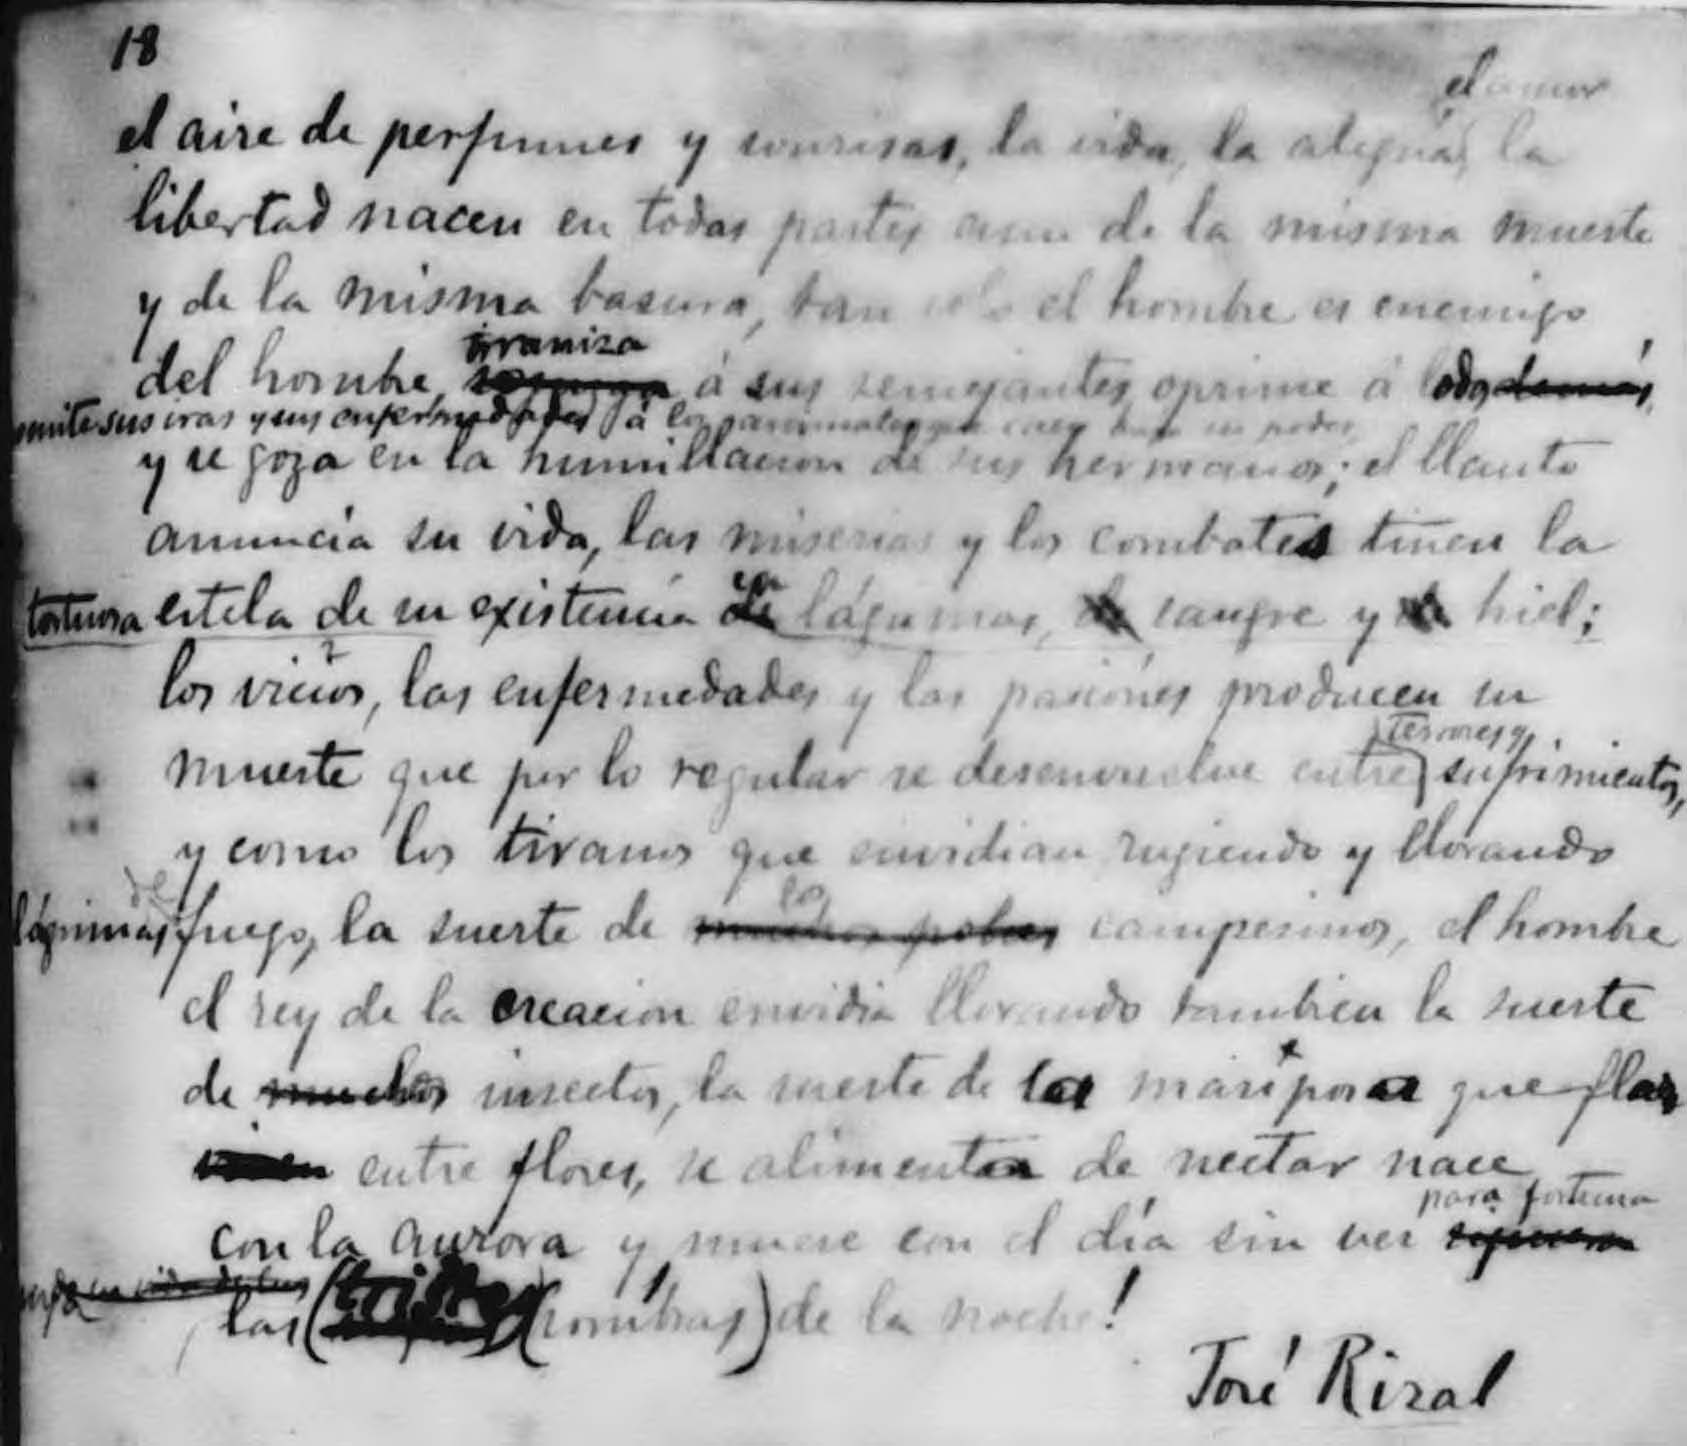 18
el amor
el aire de perfumes y sonrisas, la vida, la alegría, la
libertad nacen en todas partes aun de la misma muerte
y de la misma basura, tan solo el hombre es enemigo
tiraniza
del hombre, á sus semejantes, oprime á todos demás,
sus iras y sus enfermedades á los que caen bajo su poder,
y se goza en la humillacion de sus hermanos; el llanto
anuncia su vida, las miserias y los combates tiñen la
en
tortuosa estela de su existencia de lágrimas, de sangre y de hiel;
los vicios, las enfermedades y las pasiones producen su
terrores y
muerte que por lo regular se desenvuelve entre sufrimientos,
y como los tiranos que envidian rugiendo y llorando
de los
lágrimas fuego, la suerte de muchos pobres campesinos, el hombre
el rey de la creacion envidia llorando tambien la suerte
de muchos insectos, la suerte de las mariposa que
entre flores, se alimenta de nectar nace
para fortuna
con la aurora y muere con el día sin ver
las (tristes (sombras) de la noche!
José Rizal